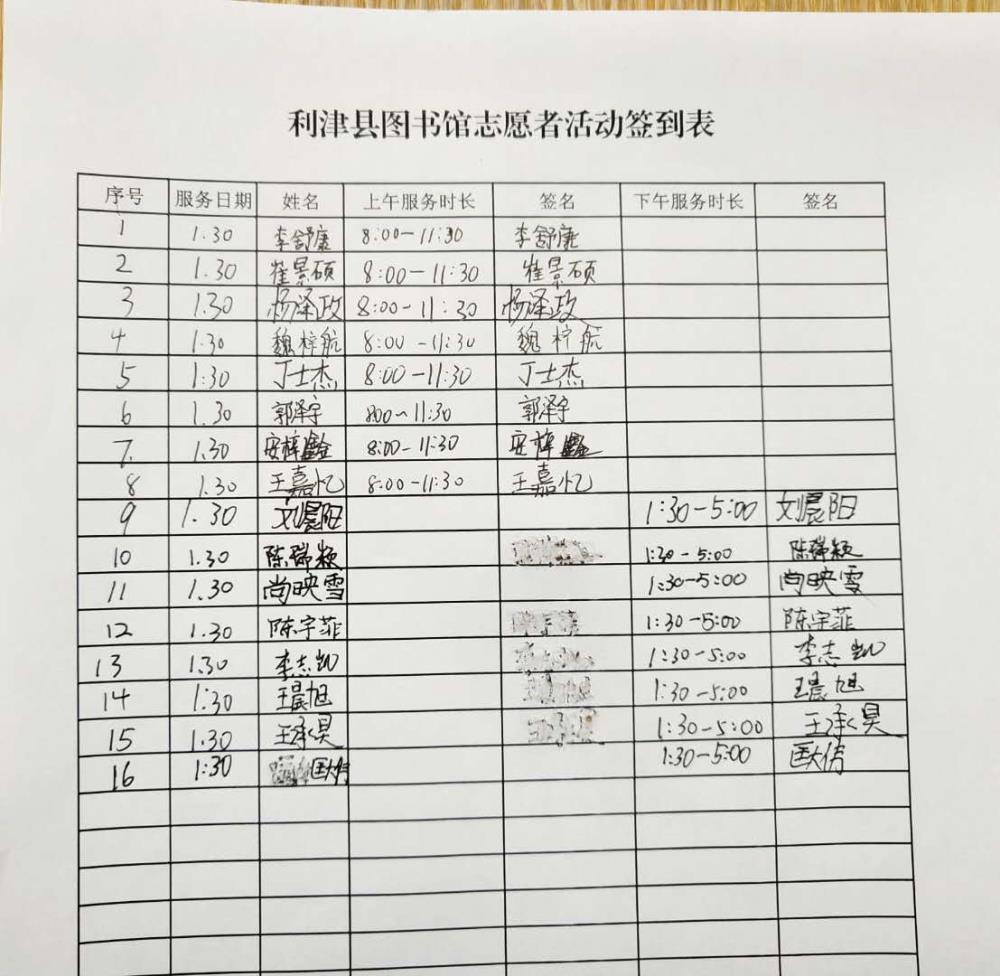 利津县图书馆志愿者活动签到表
序号 服务日期 姓名 上午服务时长 签名 下午服务时长 签名
1 1.30 李舒康 8:00-11:30 李舒康
2 1.30 崔景硕 8:00-11:30 崔景硕
3 1.30 杨泽政 8:00-11:30 杨泽政
4 1.30 魏梓航 8:00-11:30 魏梓航
5 1:30 丁士杰 8:00-11:30 丁士杰
6 1.30 郭泽宇 800-11:30 郭泽宇
7. 1.30 安梓鑫 8:00-11:30 安梓鑫
8 1.30 王嘉忆 8:00-11:30 王嘉忆
9 1.30 刘晨阳 1:30-5:00 刘晨阳
10 1.30 陈瑞颖 1:30-5:00 陈瑞颖
11 1.30 尚映雪 1:30-5:00 尚映雪
12 1.30 陈宇菲 1:30-5:00 陈宇菲
13 1.30 李志凯 1:30-5:00 李志凯
14 1:30 王晨旭 1:30-5:00 王晨旭
15 1.30 王承昊 1:30-5:00 王承昊
16 1:30 1:30-5:00